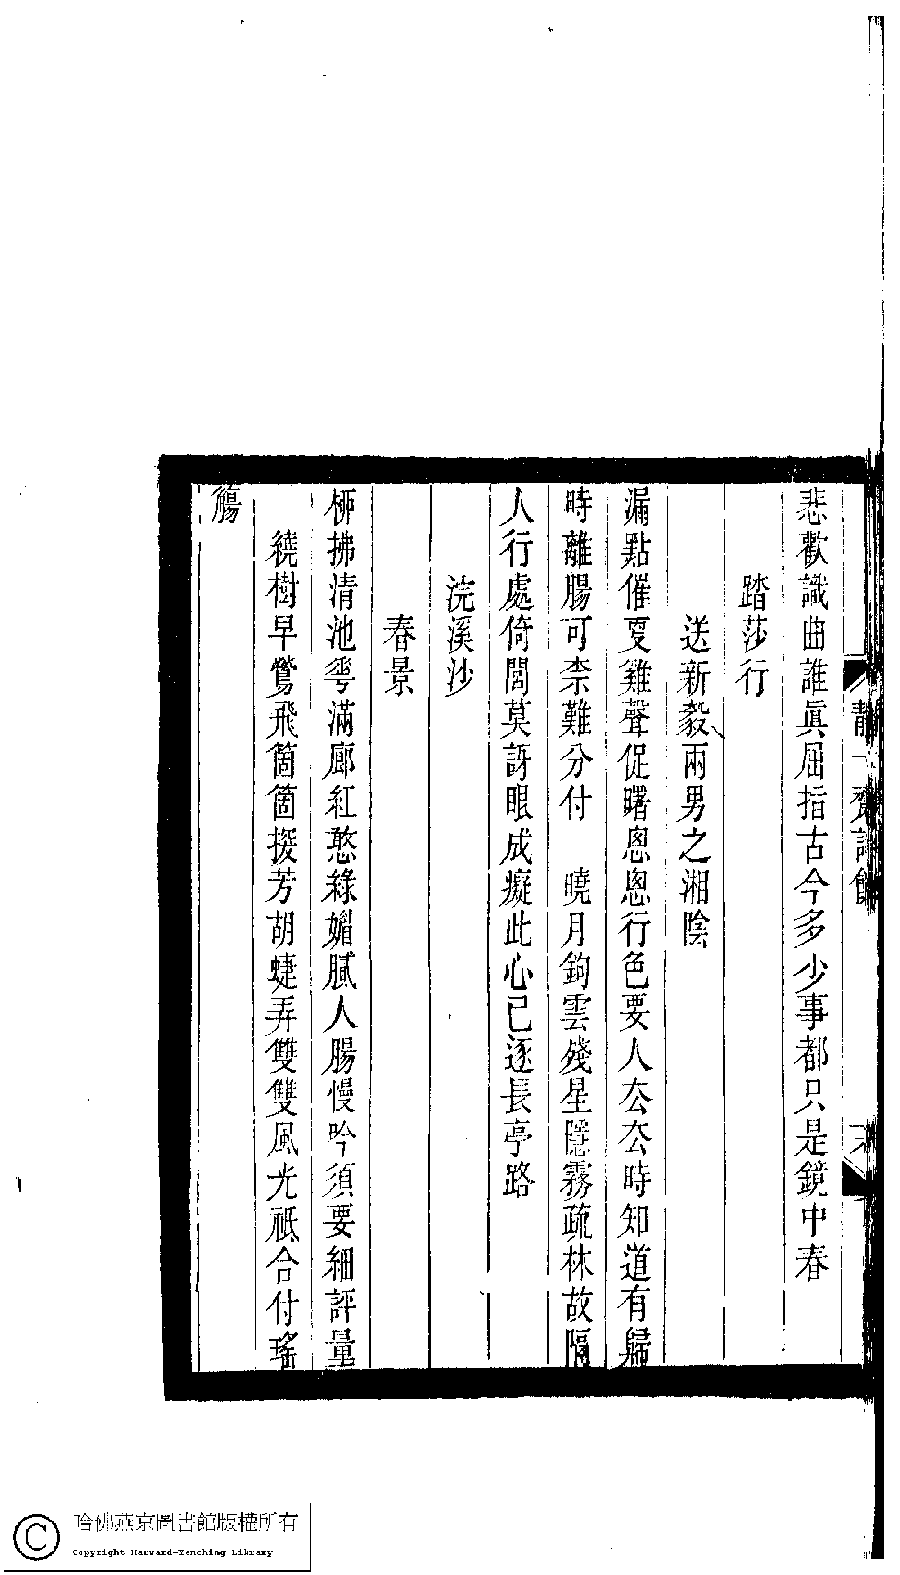 悲歡識曲誰眞屈指古今多少事都只是鏡中春
踏莎行
送新毅兩男之湘陰
漏點催更雞聲促曙悤悤行色要人厺厺時知道有歸
時離腸可柰難分付　曉月鉤雲殘星隱霧疏林故隔
人行處倚閭莫訝眼成癡此心已逐長亭路
浣溪沙
春景
柳拂清池雩滿廊紅憨綠媚膩人腸慢吟須要細評量
繞樹早鶯飛箇箇援芳胡蜨弄雙雙風光祗合付瑤
觴
哈佛燕京圖書館版權所有
Copyright Harvard-Yenching Library